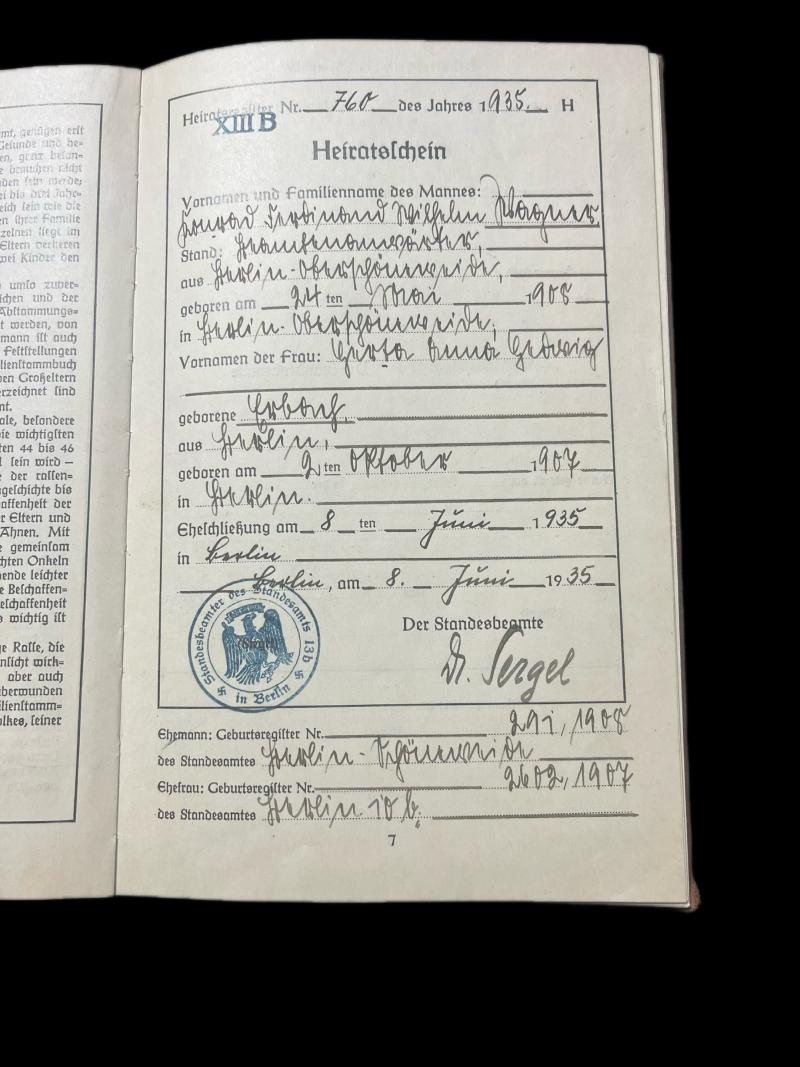 mt, genügen erst
Gesunde und be-
en, ganz beson-
e brauchen nicht
den sein werde;
ei bis drei Jahr-
eich sein wie die
en Ihrer Familie
zelnen liegt im
Eltern weiteren
wei Kinder den
umso zuver-
ichen und der
Abstammungs-
t werden, von
mann ist auch
Feststellungen
lienstammbuch
en Großeltern
erzeichnet sind
nt.
ale, besondere
ie wichtigsten
ten 44 bis 46
l sein wird —
e der rassen-
ngeschichte bis
affenheit der
r Eltern und
Ahnen. Mit
e gemeinsam
chten Onkeln
ende leichter
e Beschaffen-
eschaffenheit
s wichtig ist
ge Rasse, die
nsicht wirk-
aber auch
überwunden
ilienstamm-
olkes, seiner
Heiratsregister Nr. 760 des Jahres 1935. H
XIII B
Heiratsschein
Vornamen und Familienname des Mannes:
Konrad Ferdinand Wilhelm Wagner,
Stand: Beamtenanwärter,
aus Berlin-Oberschöneweide,
geboren am 24 ten Mai 1908
in Berlin-Oberschöneweide,
Vornamen der Frau: Herta Anna Hedwig
geborene Erbach,
aus Berlin,
geboren am 2 ten Oktober 1907
in Berlin.
Eheschließung am 8 ten Juni 1935
in Berlin
Berlin, am 8. Juni 1935
Der Standesbeamte
Dr. Sergel
Standesbeamter des Standesamts 13b
in Berlin
(Siegel)
Ehemann: Geburtsregister Nr. 291, 1908
des Standesamtes Berlin-Schöneweide
Ehefrau: Geburtsregister Nr. 2602, 1907
des Standesamtes Berlin 10 b.
7